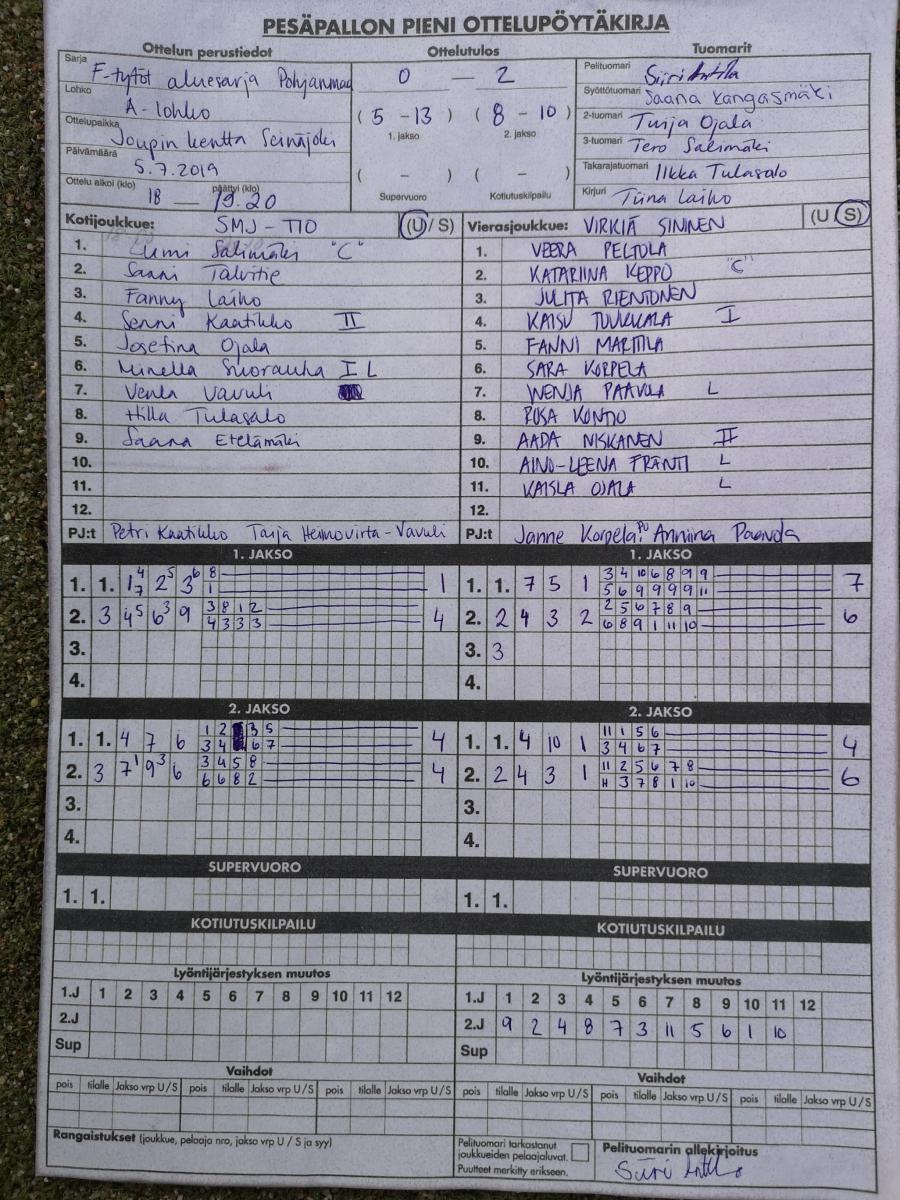 PESÄPALLON PIENI OTTELUPÖYTÄKIRJA
Ottelun perustiedot
Sarja F-tytöt aluesarja Pohjanmaa
Lohko A-lohko
Ottelupaikka Joupin kenttä Seinäjoki
Päivämäärä 5.7.2019
Ottelu alkoi (klo) 18 — päättyi (klo) 19.20
Ottelutulos
0 — 2
(5 - 13) (8 - 10)
1. jakso 2. jakso
( - ) ( - )
Supervuoro Kotiutuskilpailu
Tuomarit
Pelituomari Siiri Anttila
Syöttötuomari Saana Kangasmäki
2-tuomari Tuija Ojala
3-tuomari Tero Salimäki
Takarajatuomari Ilkka Tulasalo
Kirjuri Tiina Laiho
Kotijoukkue: SMJ-TIO (U / S)
1. Lumi Salimäki "C"
2. Saani Talvitie
3. Fanny Laiho
4. Senni Kaatikko II
5. Josefina Ojala
6. Minella Suorauha I L
7. Venla Vavuli
8. Hilla Tulasalo
9. Saana Etelämäki
10.
11.
12.
PJ:t Petri Kaatikko Tarja Heimovirta-Vavuli
Vierasjoukkue: VIRKIÄ SININEN (U / S)
1. VEERA PELTOLA
2. KATARIINA KEPPO "C"
3. JULITA RIENTONEN
4. KAISU TUUKKALA I
5. FANNI MARTTILA
6. SARA KORPELA
7. WENJA PAAVOLA L
8. ROSA KONTIO
9. AADA NISKANEN II
10. AINO-LEENA FRÄNTI L
11. KAISLA OJALA L
12.
PJ:t Janne Korpela PU Anniina Paavola
1. JAKSO
1. 1. 1 4 7 2 5 3 6 8 1 1
2. 3 4 5 6 3 9 3 8 1 2 4
4 3 3 3
3.
4.
1. JAKSO
1. 1. 7 5 1 3 4 10 6 8 9 9 7
5 6 9 9 9 9 11
2. 2 4 3 2 2 5 6 7 8 9 6
6 8 9 1 11 10
3. 3
4.
2. JAKSO
1. 1. 4 7 6 1 2 3 5 4
3 4 6 7
2. 3 7 1 9 3 6 3 4 5 8 4
6 6 8 2
3.
4.
2. JAKSO
1. 1. 4 10 1 11 1 5 6 4
3 4 6 7
2. 2 4 3 1 11 2 5 6 7 8 6
3 7 8 1 10
3.
4.
SUPERVUORO
1. 1.
SUPERVUORO
1. 1.
KOTIUTUSKILPAILU
KOTIUTUSKILPAILU
Lyöntijärjestyksen muutos
1.J 1 2 3 4 5 6 7 8 9 10 11 12
2.J
Sup
Lyöntijärjestyksen muutos
1.J 1 2 3 4 5 6 7 8 9 10 11 12
2.J 9 2 4 8 7 3 11 5 6 1 10
Sup
Vaihdot
pois tilalle Jakso vrp U/S pois tilalle Jakso vrp U/S pois tilalle Jakso vrp U/S
Vaihdot
pois tilalle Jakso vrp U/S pois tilalle Jakso vrp U/S pois tilalle Jakso vrp U/S
Rangaistukset (joukkue, pelaaja nro, jakso vrp U / S ja syy)
Pelituomari tarkastanut
joukkueiden pelaajaluvat.
Puutteet merkitty erikseen.
Pelituomarin allekirjoitus
Siiri Anttila